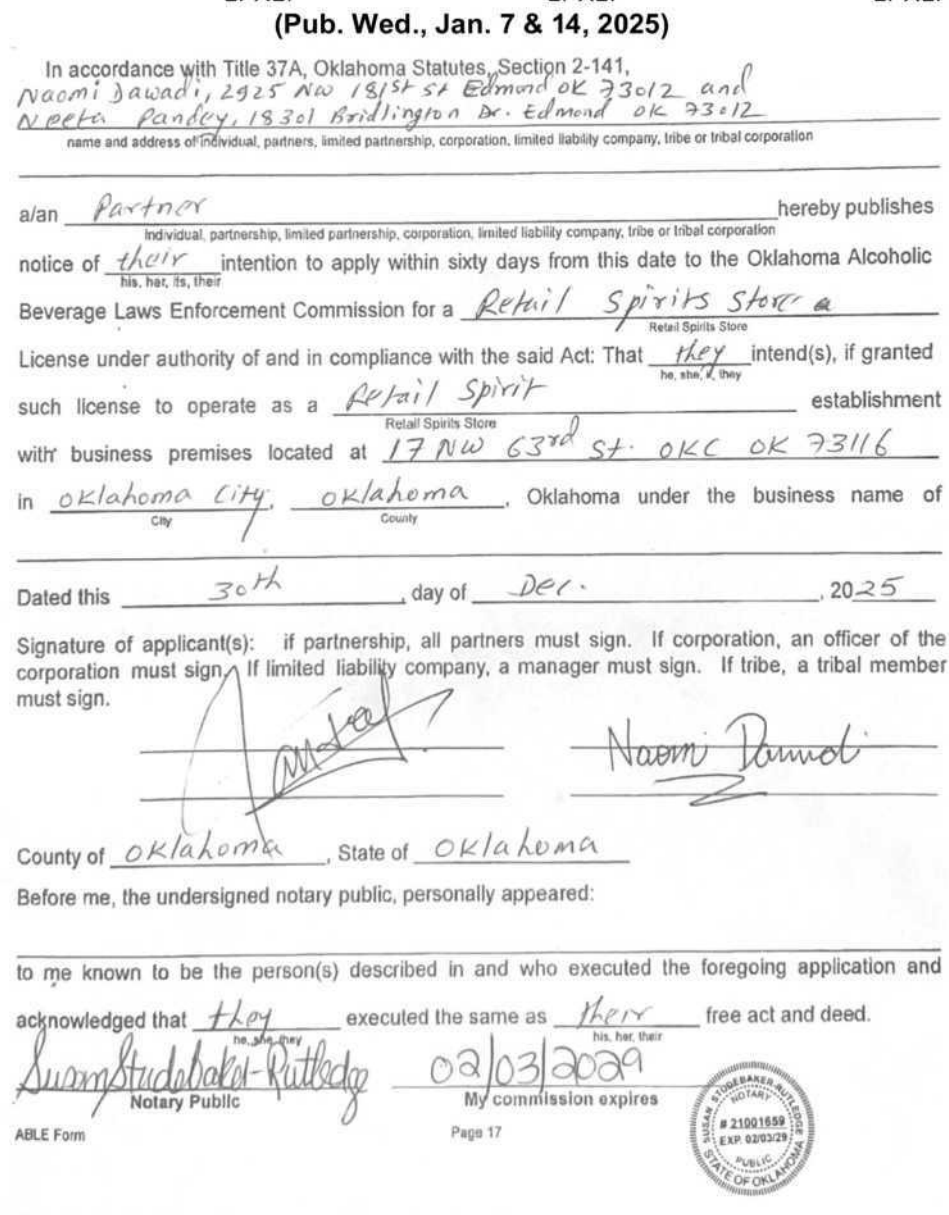 (Pub. Wed., Jan. 7 & 14, 2025)
In accordance with Title 37A, Oklahoma Statutes, Section 2-141,
Naomi Dawadi, 2925 NW 181st st Edmond OK 73012 and
Neeta Pandey, 18301 Bridlington Dr. Edmond OK 73012
name and address of individual, partners, limited partnership, corporation, limited liability company, tribe or tribal corporation
a/an Partner hereby publishes
Individual, partnership, limited partnership, corporation, limited liability company, tribe or tribal corporation
notice of their intention to apply within sixty days from this date to the Oklahoma Alcoholic
his, her, its, their
Beverage Laws Enforcement Commission for a Retail Spirits Store a
Retail Spirits Store
License under authority of and in compliance with the said Act: That they intend(s), if granted
he, she, it, they
such license to operate as a Retail Spirit establishment
Retail Spirits Store
with business premises located at 17 NW 63rd St. OKC OK 73116
in Oklahoma City, Oklahoma, Oklahoma under the business name of
City County
Dated this 30th, day of Dec., 2025
Signature of applicant(s): if partnership, all partners must sign. If corporation, an officer of the
corporation must sign. If limited liability company, a manager must sign. If tribe, a tribal member
must sign.
Naomi Dawadi
County of Oklahoma, State of Oklahoma
Before me, the undersigned notary public, personally appeared:
to me known to be the person(s) described in and who executed the foregoing application and
acknowledged that they executed the same as their free act and deed.
he, she, they his, her, their
Susan Studebaker-Rutledge 02/03/2029
Notary Public My commission expires
ABLE Form Page 17
SUSAN STUDEBAKER-RUTLEDGE
NOTARY
# 21001659
EXP. 02/03/29
PUBLIC
STATE OF OKLAHOMA